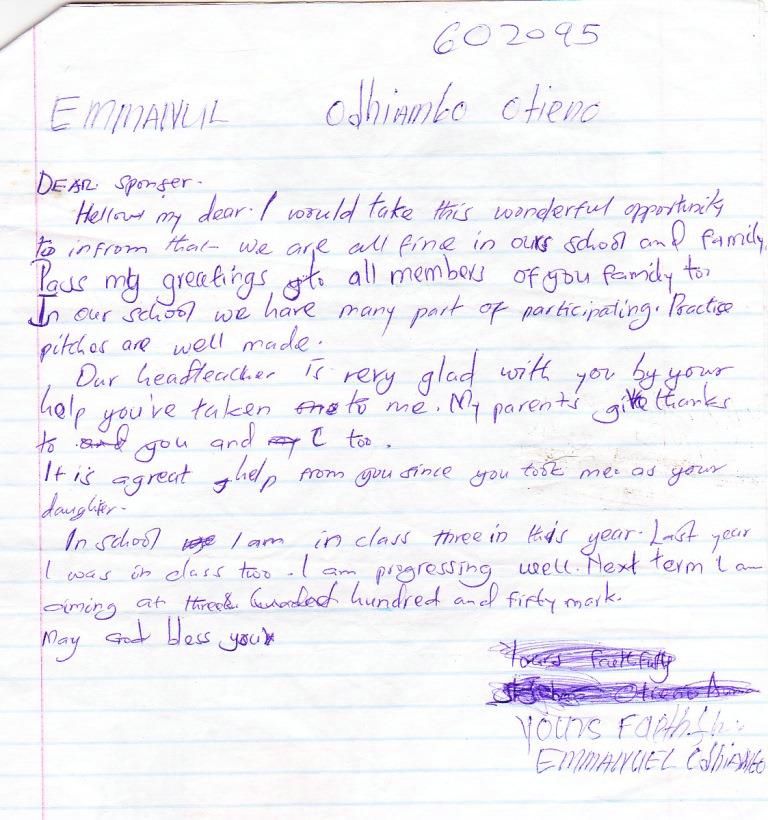 602095
EMMANUL Odhiambo Otieno
DEAR. Sponser.
Hellow my dear. I would take this wonderful opportunity
to infrom that we are all fine in ours school and family.
Pass my greetings to all members of you family to
In our school we have many part of participating. Practise
pitches are well made.
Our headteacher is very glad with you by your
help you've taken to me. My parents give thanks
to you and I too.
It is a great help from you since you took me as your
daughter.
In school I am in class three in this year. Last year
I was in class two. I am progressing well. Next term I am
aiming at three hundred and fifty mark.
May God bless you
Yours faithfully
YOURS
EMMANUEL Odhiambo